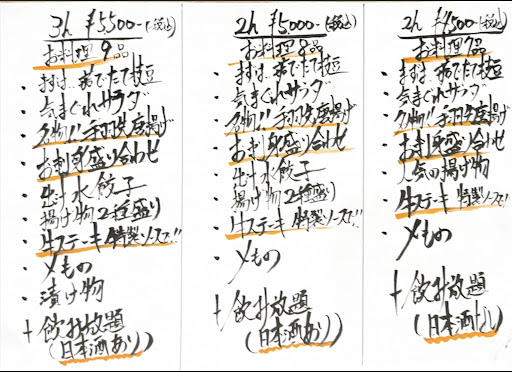 3h ¥5,500-(税込)
お料理9品
・まずは茹でたて枝豆
・気まぐれサラダ
・名物!!手羽先唐揚げ
・お刺身盛り合わせ
・出汁水餃子
・揚げ物2種盛り
・牛ステーキ特製ソースで!!
・〆もの
・漬け物
+飲み放題
(日本酒あり)
2h ¥5,000-(税込)
お料理8品
・まずは茹でたて枝豆
・気まぐれサラダ
・名物!!手羽先唐揚げ
・お刺身盛り合わせ
・出汁水餃子
・揚げ物2種盛り
・牛ステーキ特製ソースで!!
・〆もの
+飲み放題
(日本酒あり)
2h ¥4,500-(税込)
お料理7品
・まずは茹でたて枝豆
・気まぐれサラダ
・名物!!手羽先唐揚げ
・お刺身盛り合わせ
・人気の揚げ物
・牛ステーキ特製ソースで!!
・〆もの
+飲み放題
(日本酒なし)